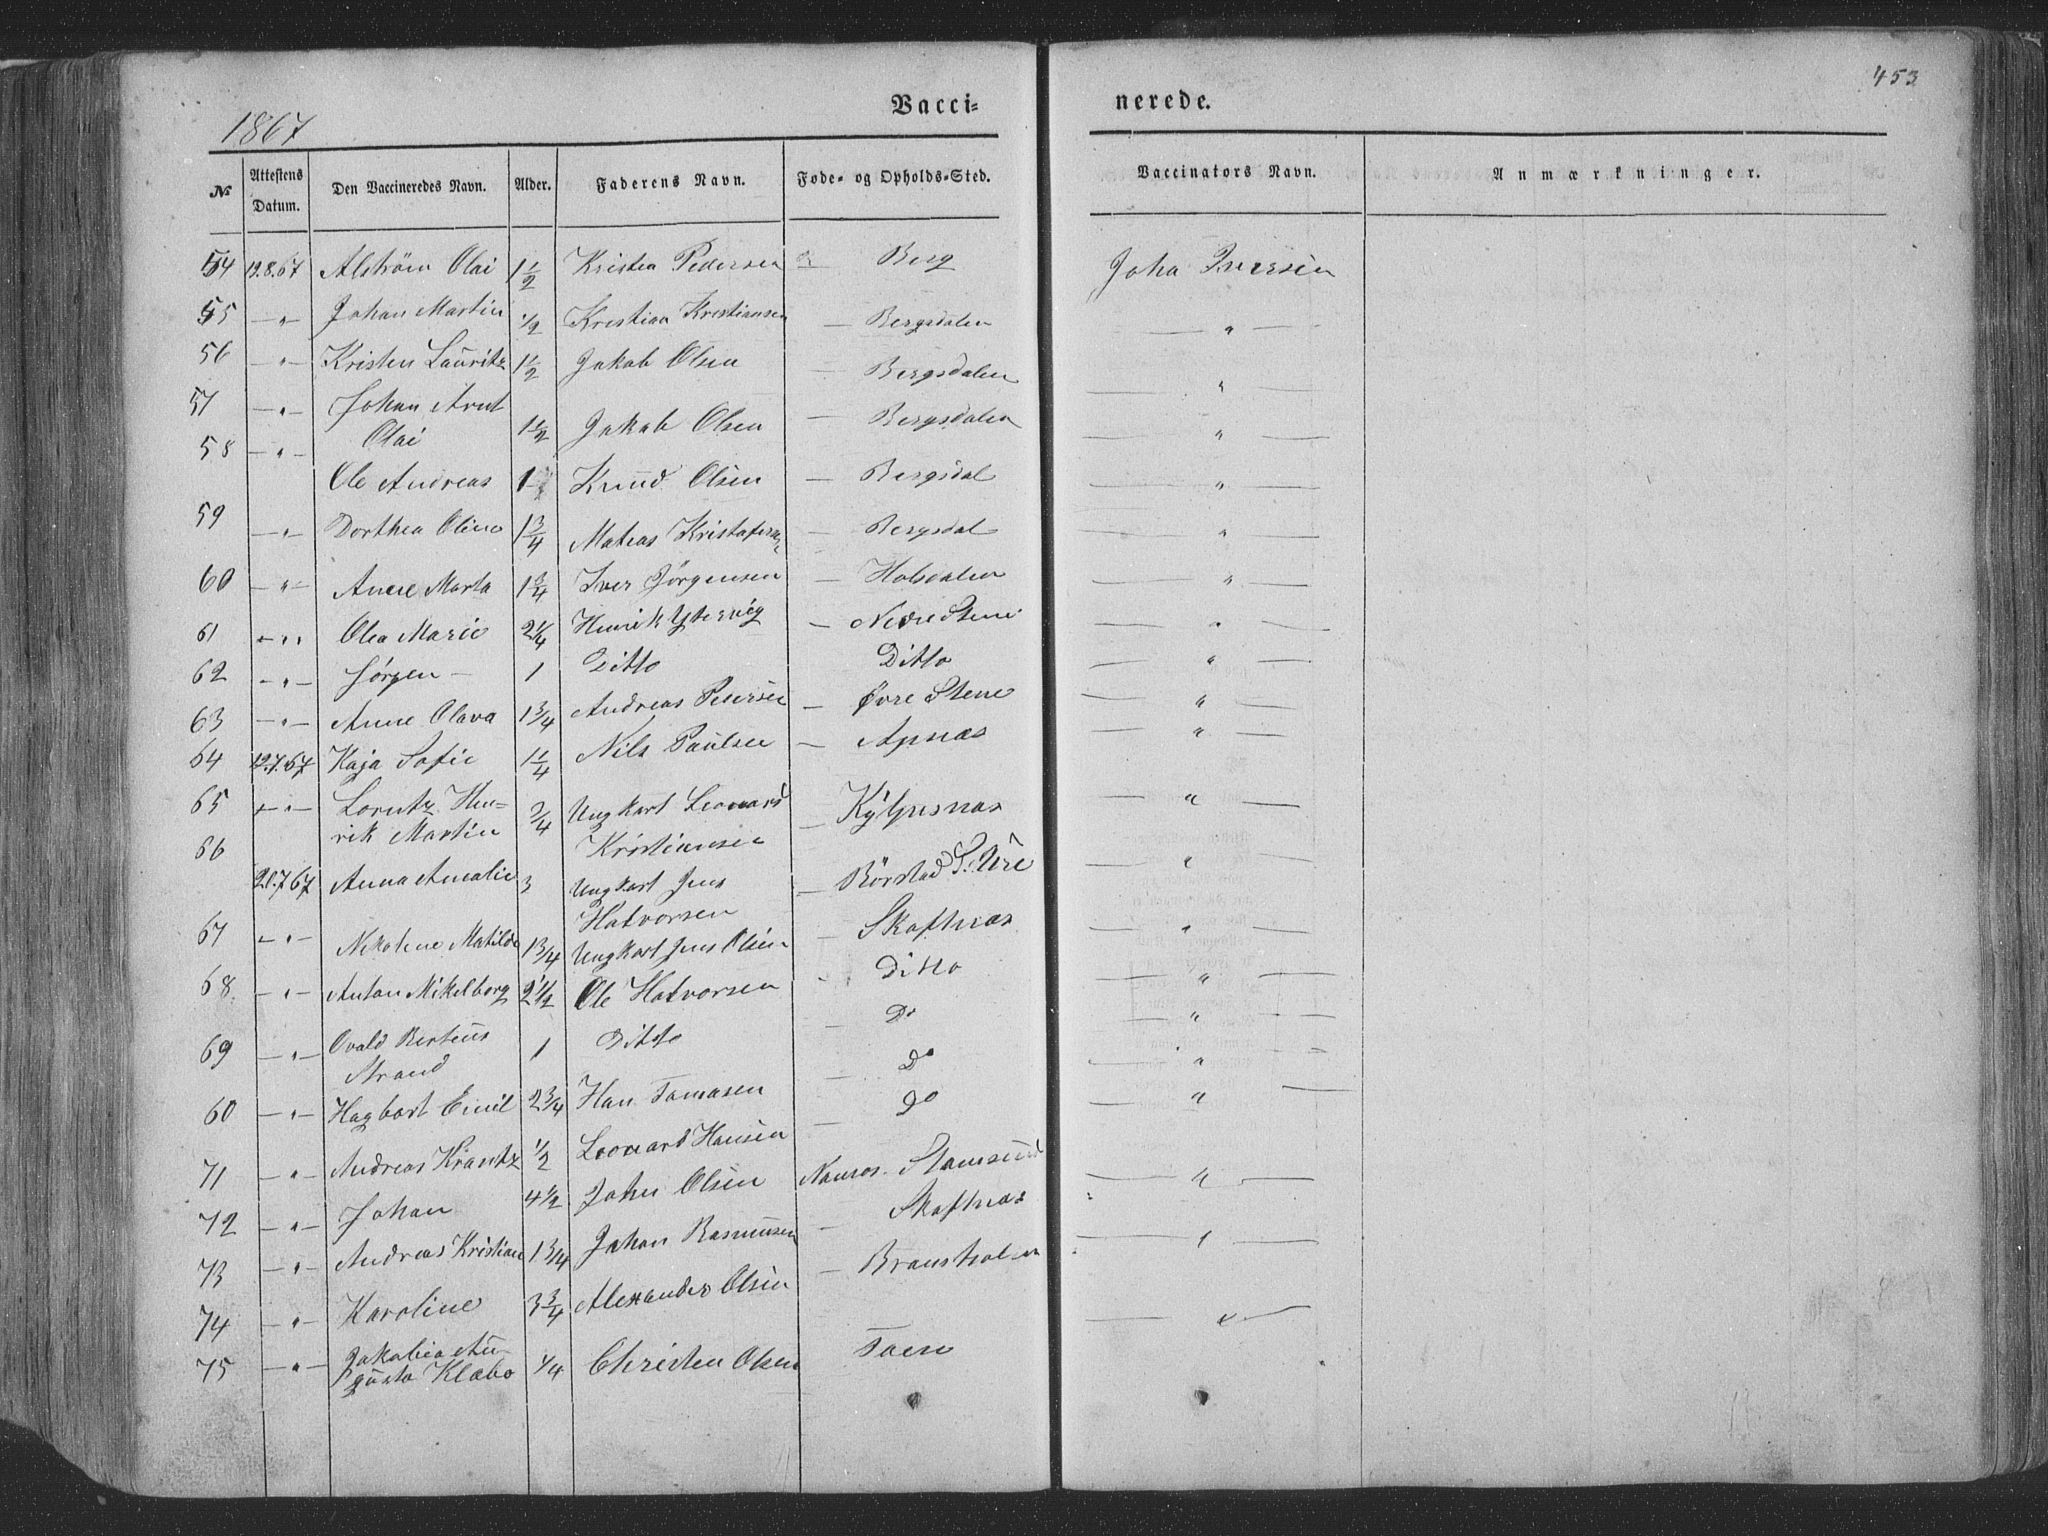 453
1867
Vacci-
nerede.
№ Attestens Datum. Den Vaccineredes Navn. Alder. Faderens Navn. Føde- og Opholds-Sted. Vaccinators Navn. Anmærkninger.
54 19.8.67 Alström Olai 1 1/2 Kristen Pedersen Berg Joha Iversen
55 —"— Johan Martin 1/2 Kristian Kristiansen — Bergsdalen — " —
56 —"— Kristen Lauritz 1 1/2 Jakob Olsen — Bergsdalen — " —
57 —"— Johan Arnt
Olai 1 1/2 Jakob Olsen — Bergsdalen — " —
58 —"— Ole Andreas 1 Knud Olsen — Bergsdal — " —
59 —"— Dorthea Oline 1 3/4 Matias — Bergsdal — " —
60 —"— Anne Marta 1 3/4 Iver Jørgensen — Holsdalen — " —
61 —"— Olea Marie 2 1/4 Henrik Ytervig — Nedre Stene — " —
62 —"— Jørgen — 1 Ditto Ditto — " —
63 —"— Anne Olava 1 3/4 Andreas Petersen — Øvre Stene — " —
64 12.7.67 Kaja Sofie 1 1/4 Nils Paulsen — Apnæs — " —
65 —"— Lorntz Hen-
rik Martin 3/4 Ungkarl Leonard
Kristiansen — "
66 20.7.67 Anna Amalie 3 Ungkarl Jens
Halvorsen — Børstad S. Ure — " —
67 —"— Nikoline Matilde 1 3/4 Ungkarl Jens Olsen — Skafnæs — " —
68 —"— Anton Mikelborg 2 1/2 Ole Halvorsen Ditto — " —
69 —"— Ovald Berteus
Strand 1 Ditto Do — " —
60 —"— Hagbart Emil 2 3/4 Han Tomasen — Do — " —
71 —"— Andreas Krantz 1/2 Leonard Hansen — Do — " —
72 —"— Johan 4 1/2 John Olsen Stamsund — " —
73 —"— Andreas Kristian 1 3/4 Johan Rasmusen — Skafnæs — " —
74 —"— Karoline 3 3/4 Alexander Olsen — — " —
75 —"— Jakobea Au-
gusta Klæbo 1/4 Christen Olsen Toen
"
"